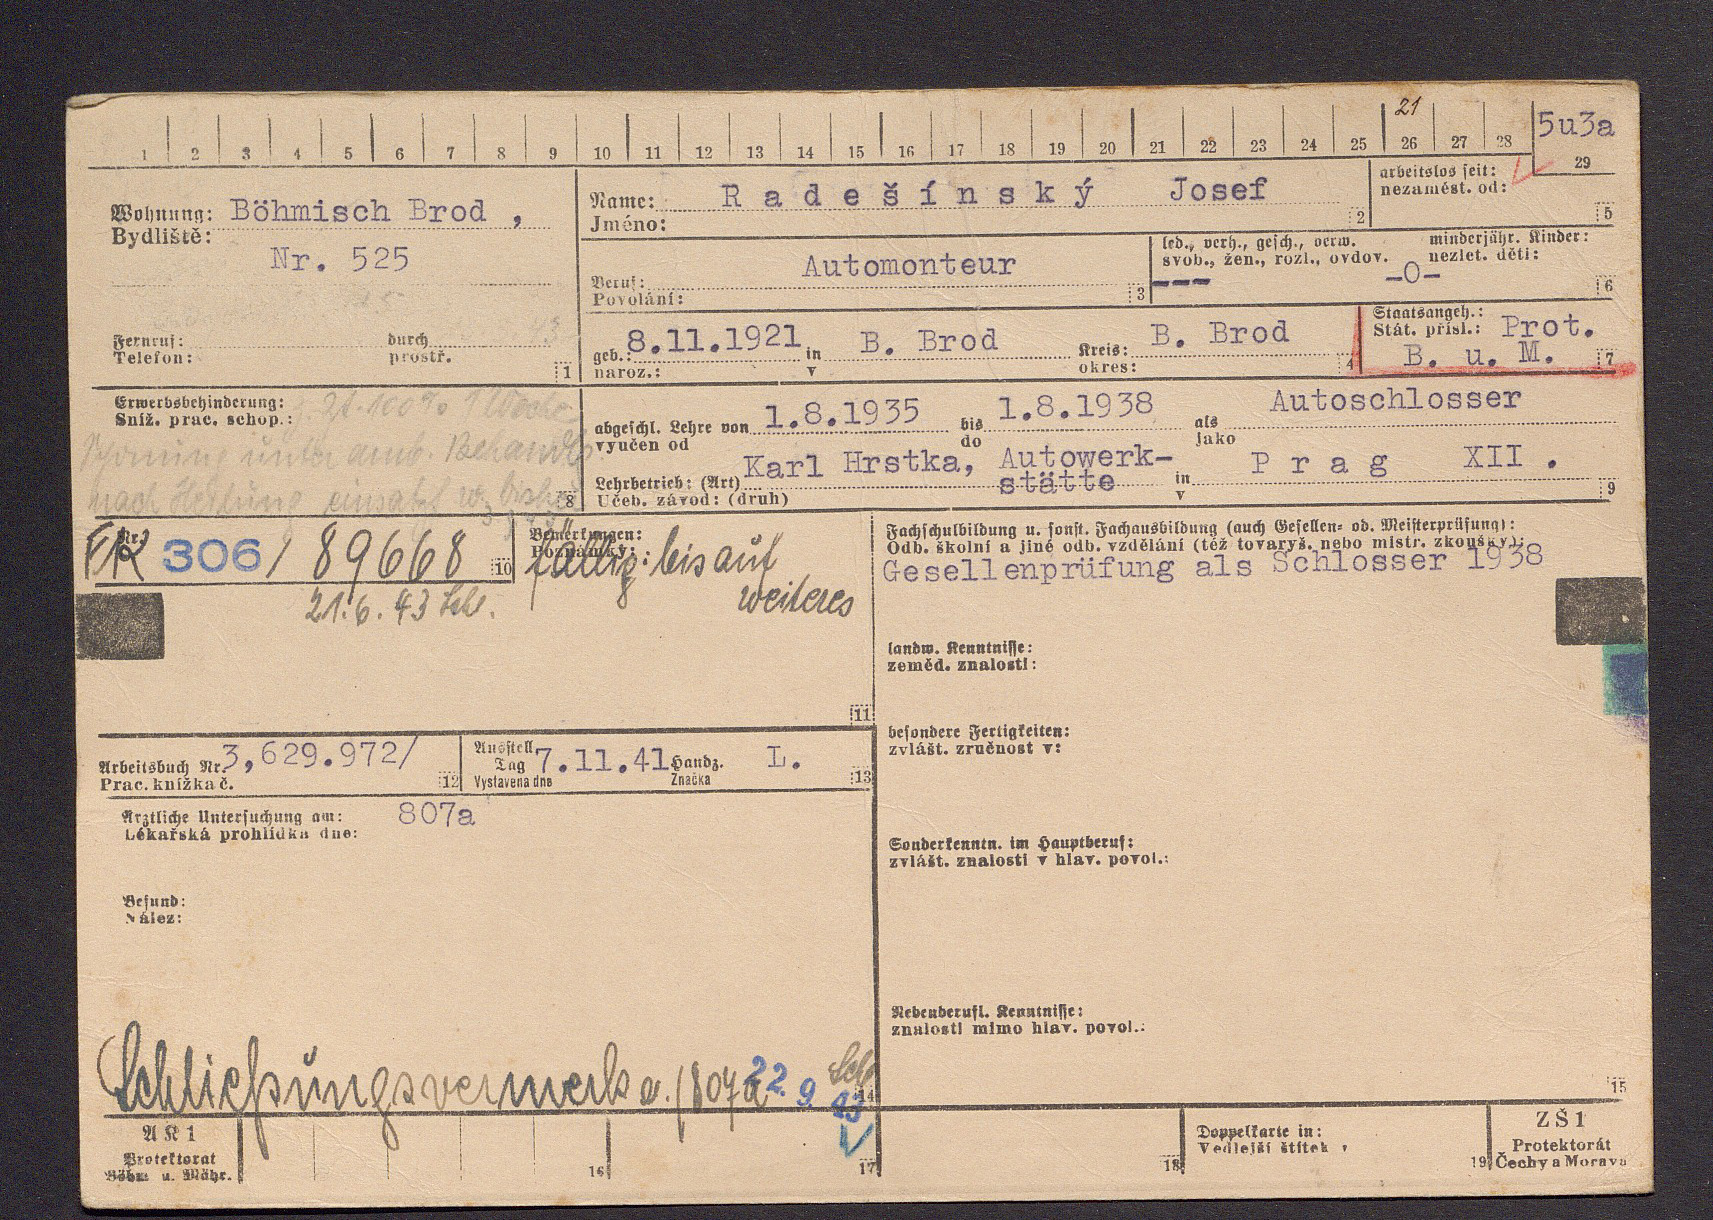 21
5u3a
1 2 3 4 5 6 7 8 9 10 11 12 13 14 15 16 17 18 19 20 21 22 23 24 25 26 27 28 29
Wohnung: Böhmisch Brod ,
Bydliště:
Nr. 525
Fernruf: durch
Telefon: prostř.
1
Name: Radešínský Josef
Jméno:
2
arbeitslos seit:
nezaměst. od:
5
Beruf: Automonteur
Povolání:
3
led., verh., gesch., verw.
svob., žen., rozl., ovdov.
---
minderjähr. Kinder:
nezlet. děti:
-0-
6
geb.: 8.11.1921 in B. Brod Kreis: B. Brod
naroz.: v okres:
4
Staatsangeh.:
Stát. přísl.: Prot.
B. u. M.
7
Erwerbsbehinderung:
Sníž. prac. schop.:
unter amb. Behandlg.
nach Heilung
8
abgeschl. Lehre von 1.8.1935 bis 1.8.1938 als Autoschlosser
vyučen od do jako
Lehrbetrieb: (Art) Karl Hrstka, Autowerk-
stätte in Prag XII .
Učeb. závod: (druh) v
9
Nr.
FK 306/89668
10
21.6.43 Sch.
Bemerkungen:
Poznámky:
fällig: bis auf
weiteres
11
Fachschulbildung u. sonst. Fachausbildung (auch Gesellen= od. Meisterprüfung):
Odb. školní a jiné odb. vzdělání (též tovaryš. nebo mistr. zkoušky):
Gesellenprüfung als Schlosser 1938
landw. Kenntnisse:
zeměd. znalosti:
besondere Fertigkeiten:
zvlášt. zručnost v:
Sonderkenntn. im Hauptberuf:
zvlášt. znalosti v hlav. povol.:
Nebenberufl. Kenntnisse:
znalosti mimo hlav. povol.:
15
Arbeitsbuch Nr. 3,629.972/
Prac. knížka č.
12
Ausstell
Tag 7.11.41 Handz. L.
Vystavena dne Značka
13
Ärztliche Untersuchung am: 807a
Lékařská prohlídka dne:
Befund:
Nález:
Schließungsvermerk a. (807a
22. 9. 43
Sch
14
AK 1
Protektorat
Böhm. u. Mähr.
16
17
18
Doppelkarte in:
Vedlejší štítek v
19
ZŠ 1
Protektorát
Čechy a Morava